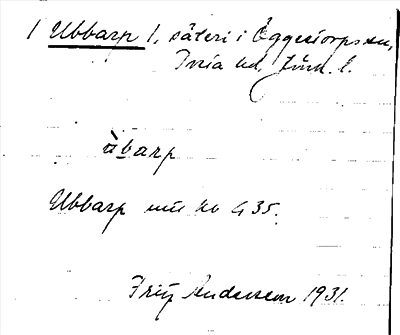 1 Ubbarp 1, säteri i Öggestorps sn,
Tveta hd, Jönk. l.
ùbarp
Ubbarp
435.
Fritz Andersson 1931.